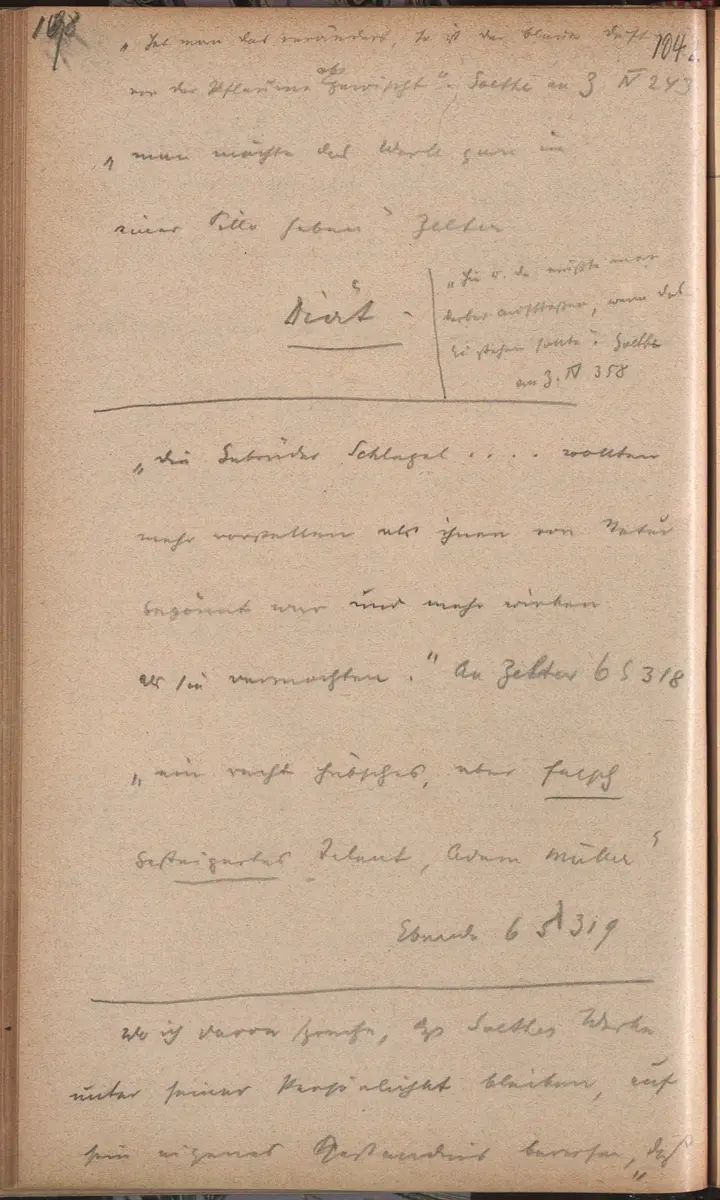 108
104
„ Hat man das verändert, so ist der blaue Duft
von der Pflaume abgewischt". Goethe an Z IV 243
„ man möchte das Werk gern in
einer Pille haben" Zelter
Diät -
„Hie u. da müßte man
derber aufstoßen, wenn das
Ei stehen sollte". Goethe
an Z. IV 358
„die Gebrüder Schlegel . . . . wollten
mehr vorstellen als ihnen von Natur
gegönnt war und mehr wirken
als sie vermochten." An Zelter 6 S 318
„ein recht hübsches, aber falsch
gesteigertes Talent, Adam Müller"
Ebenda 6 S 319
Wo ich davon spreche, dass Goethes Werke
unter seiner Persönlichkt bleiben, auf
sein eigenes Geständnis berufen, „daß